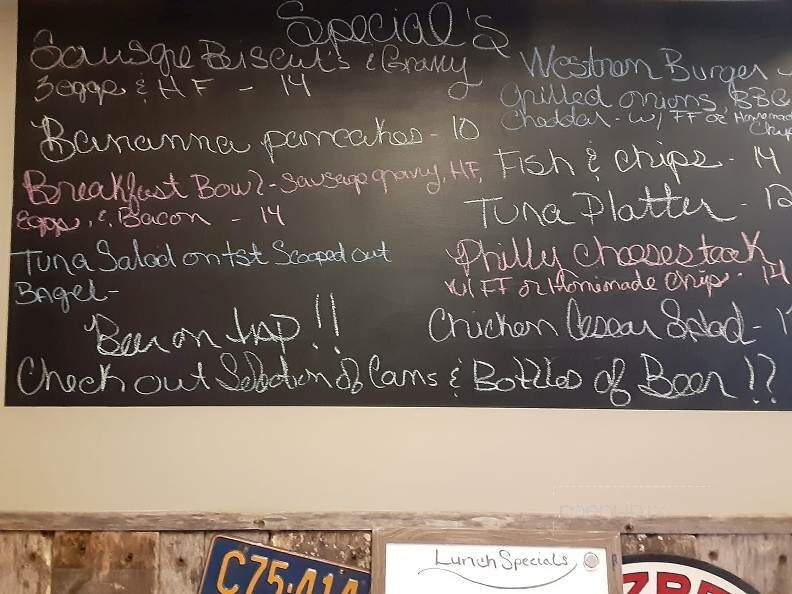 Special's
Sausgre Biscuit's & Gravy
3 eggs & HF - 14
Bananna pancakes - 10
Breakfast Bowl - Sausage gravy, HF,
eggs, & Bacon - 14
Tuna Salad on tst Scooped out
Bagel -
Beer on tap!!
Westron Burger -
Grilled onions, BBQ
Cheddar - w/ FF or Homemade
Chips
Fish & chips - 14
Tuna Platter - 12
Philly cheesesteack
w/ FF or Homemade Chips - 14
Chicken Cesear Salad -
Check out Selection of Cans & Bottles of Beer!!
C75-414
Lunch Specials